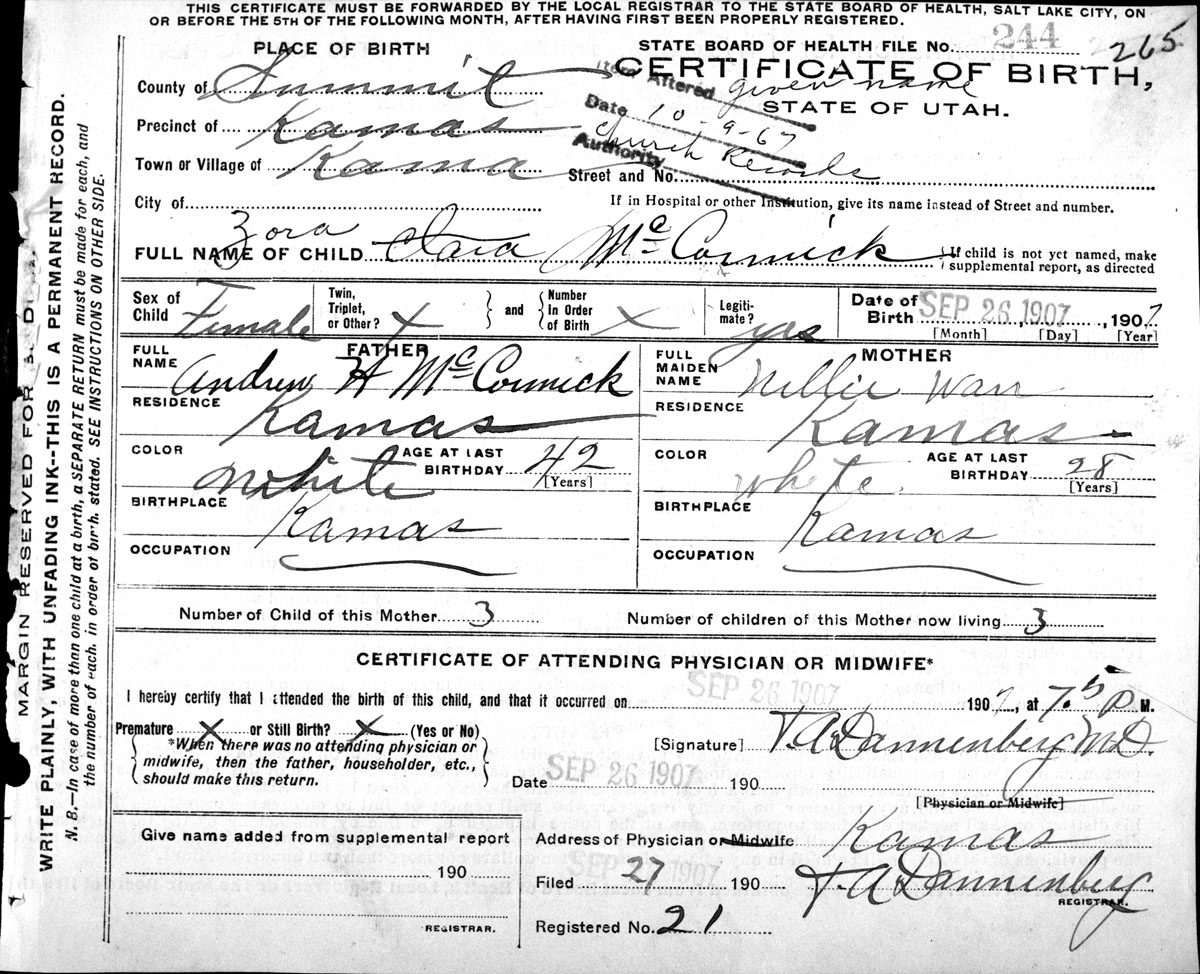 THIS CERTIFICATE MUST BE FORWARDED BY THE LOCAL REGISTRAR TO THE STATE BOARD OF HEALTH, SALT LAKE CITY, ON
OR BEFORE THE 5TH OF THE FOLLOWING MONTH, AFTER HAVING FIRST BEEN PROPERLY REGISTERED.
PLACE OF BIRTH
STATE BOARD OF HEALTH FILE No. 244 265
CERTIFICATE OF BIRTH,
STATE OF UTAH.
Item Altered given name
Date 10-9-67
Authority Church Records
County of Summit
Precinct of Kamas
Town or Village of Kama
Street and No.
City of
If in Hospital or other Institution, give its name instead of Street and number.
Zora
FULL NAME OF CHILD Clara McCormick
If child is not yet named, make
supplemental report, as directed
Sex of Child Female
Twin, Triplet, or Other? X and Number In Order of Birth X
Legitimate? yes
Date of Birth SEP 26 1907, 1907
[Month] [Day] [Year]
FATHER
FULL NAME Andrew H McCormick
RESIDENCE Kamas
COLOR White
AGE AT LAST BIRTHDAY 42
[Years]
BIRTHPLACE Kamas
OCCUPATION
MOTHER
FULL MAIDEN NAME Nellie Warr
RESIDENCE Kamas
COLOR White
AGE AT LAST BIRTHDAY 28
[Years]
BIRTHPLACE Kamas
OCCUPATION
Number of Child of this Mother 3
Number of children of this Mother now living 3
CERTIFICATE OF ATTENDING PHYSICIAN OR MIDWIFE*
I hereby certify that I attended the birth of this child, and that it occurred on SEP 26 1907 1907, at 7.5 P M.
Premature X or Still Birth? X (Yes or No)
*When there was no attending physician or
midwife, then the father, householder, etc.,
should make this return.
[Signature] T.A. Dannenberg M.D.
Date SEP 26 1907 190
[Physician or Midwife]
Give name added from supplemental report
190
REGISTRAR.
Address of Physician or Midwife Kamas
Filed SEP 27 1907 190 T A Dannenberg
REGISTRAR.
Registered No. 21
MARGIN RESERVED FOR
WRITE PLAINLY, WITH UNFADING INK--THIS IS A PERMANENT RECORD.
N. B.—In case of more than one child at a birth, a SEPARATE RETURN must be made for each, and
the number of each, in order of birth, stated. SEE INSTRUCTIONS ON OTHER SIDE.